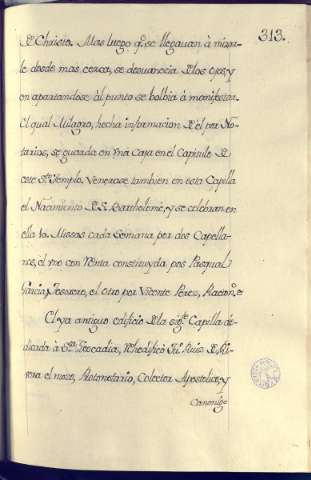 313.
de Christo. Mas luego q̃. se llegauan à mirar-
le desde mas cerca, se desuanecia de los ojos, y
en apartandose al punto se bolbia à manifestar.
El qual Milagro, hecha informacion de èl per No-
tarios, se guarda en vna Caxa en el Capitulo de
este Stº. Templo. Venerase tambien en esta Capilla
el Nacimiento de S. Bartholome, y se celebran en
ella Misas cada Semana por dos Capella-
nes, el vno con Renta constituyda por Pasqual
Garcia, Tesorero, el otro por Vicente Perez, Racion.º
El ya antiguo edificio de la sig.te Capilla de-
dicada à Sta. Leocadia, Rehedificò Ju. Ruiz de Ri-
vera el mozo, Protonotario, Colector Apostolico, y
Canonigo